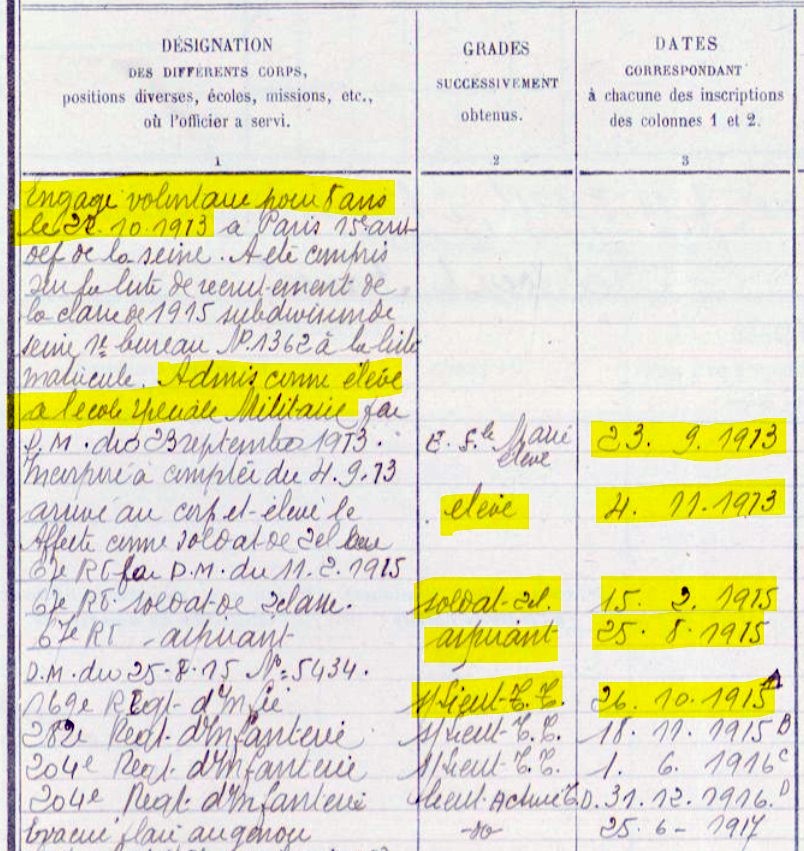 DÉSIGNATION
DES DIFFÉRENTS CORPS,
positions diverses, écoles, missions, etc.,
où l'officier a servi.
1
GRADES
SUCCESSIVEMENT
obtenus.
2
DATES
CORRESPONDANT
à chacune des inscriptions
des colonnes 1 et 2.
3
Engagé volontaire pour 8 ans
le 22.10.1913 a Paris 15e arrt
def de la seine. A été compris
sur la liste de recrutement de
la classe de 1915 subdivision de
seine 1e bureau No.1362 à la liste
matricule. Admis comme élève
a l'ecole speciale Militaire par
D.M. du 23 septembre 1913. élève 23. 9. 1913
Incorporé à compter du 4.9.13
arrivé au corps et élevé le élève 4. 11. 1913
Affecté comme soldat de 2el
67e RI par D.M. du 11.2.1915
67e RI. soldat de 2classe. soldat 2cl. 15. 2. 1915
67e RI - aspirant aspirant 25. 8. 1915
D.M. du 25-8-15 No=5434.
169e Regt d'Infie s/Lieut-T.T. 26. 10. 1915 A
282e Regt. d'Infanterie s/Lieut-T.T. 18. 11. 1915 B
204e Regt d'Infanterie s/Lieut-T.T. 1. 6. 1916 C
204e Regt d'Infanterie Lieut- D. 31. 12. 1916. D
Evacué plaie au genou -do- 25. 6 - 1917